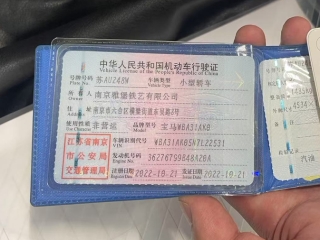 中华人民共和国机动车行驶证
Vehicle License of the People's Republic of China
号牌号码 苏AUZ49M 车辆类型 小型轿车
Plate No. Vehicle Type
所有人 南京雅堡镁艺有限公司
住址 南京市六合区横梁街道东贸路4号
使用性质 非营运 品牌型号 宝马WBA31AK0
Use Character Model
江苏省南京 车辆识别代号 WBA31AK05NTL22531
VIN
市公安局 发动机号码 36276799848A20A
Engine No.
交通管理局 注册日期 2022-10-21 发证日期 2022-10-21
Register Date Issue Date
汽油